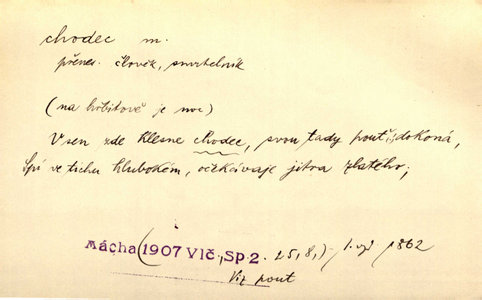 chodec m.
přenes. člověk, smrtelník
(na hřbitově je noc)
V sen zde klesne chodec, svou tady pouť dokoná,
Spí ve tichu hlubokém, očekávaje jitra zlatého;
Mácha (1907 Vlč., Sp 2. 25, 8,) 1. vyd 1862
Viz pout